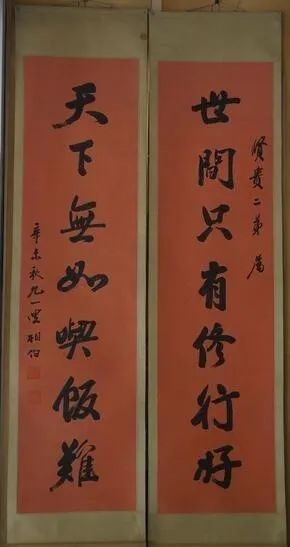 世間只有修行好
賢貴二弟 属
天下無如喫飯難
辛未秋九一叟相伯